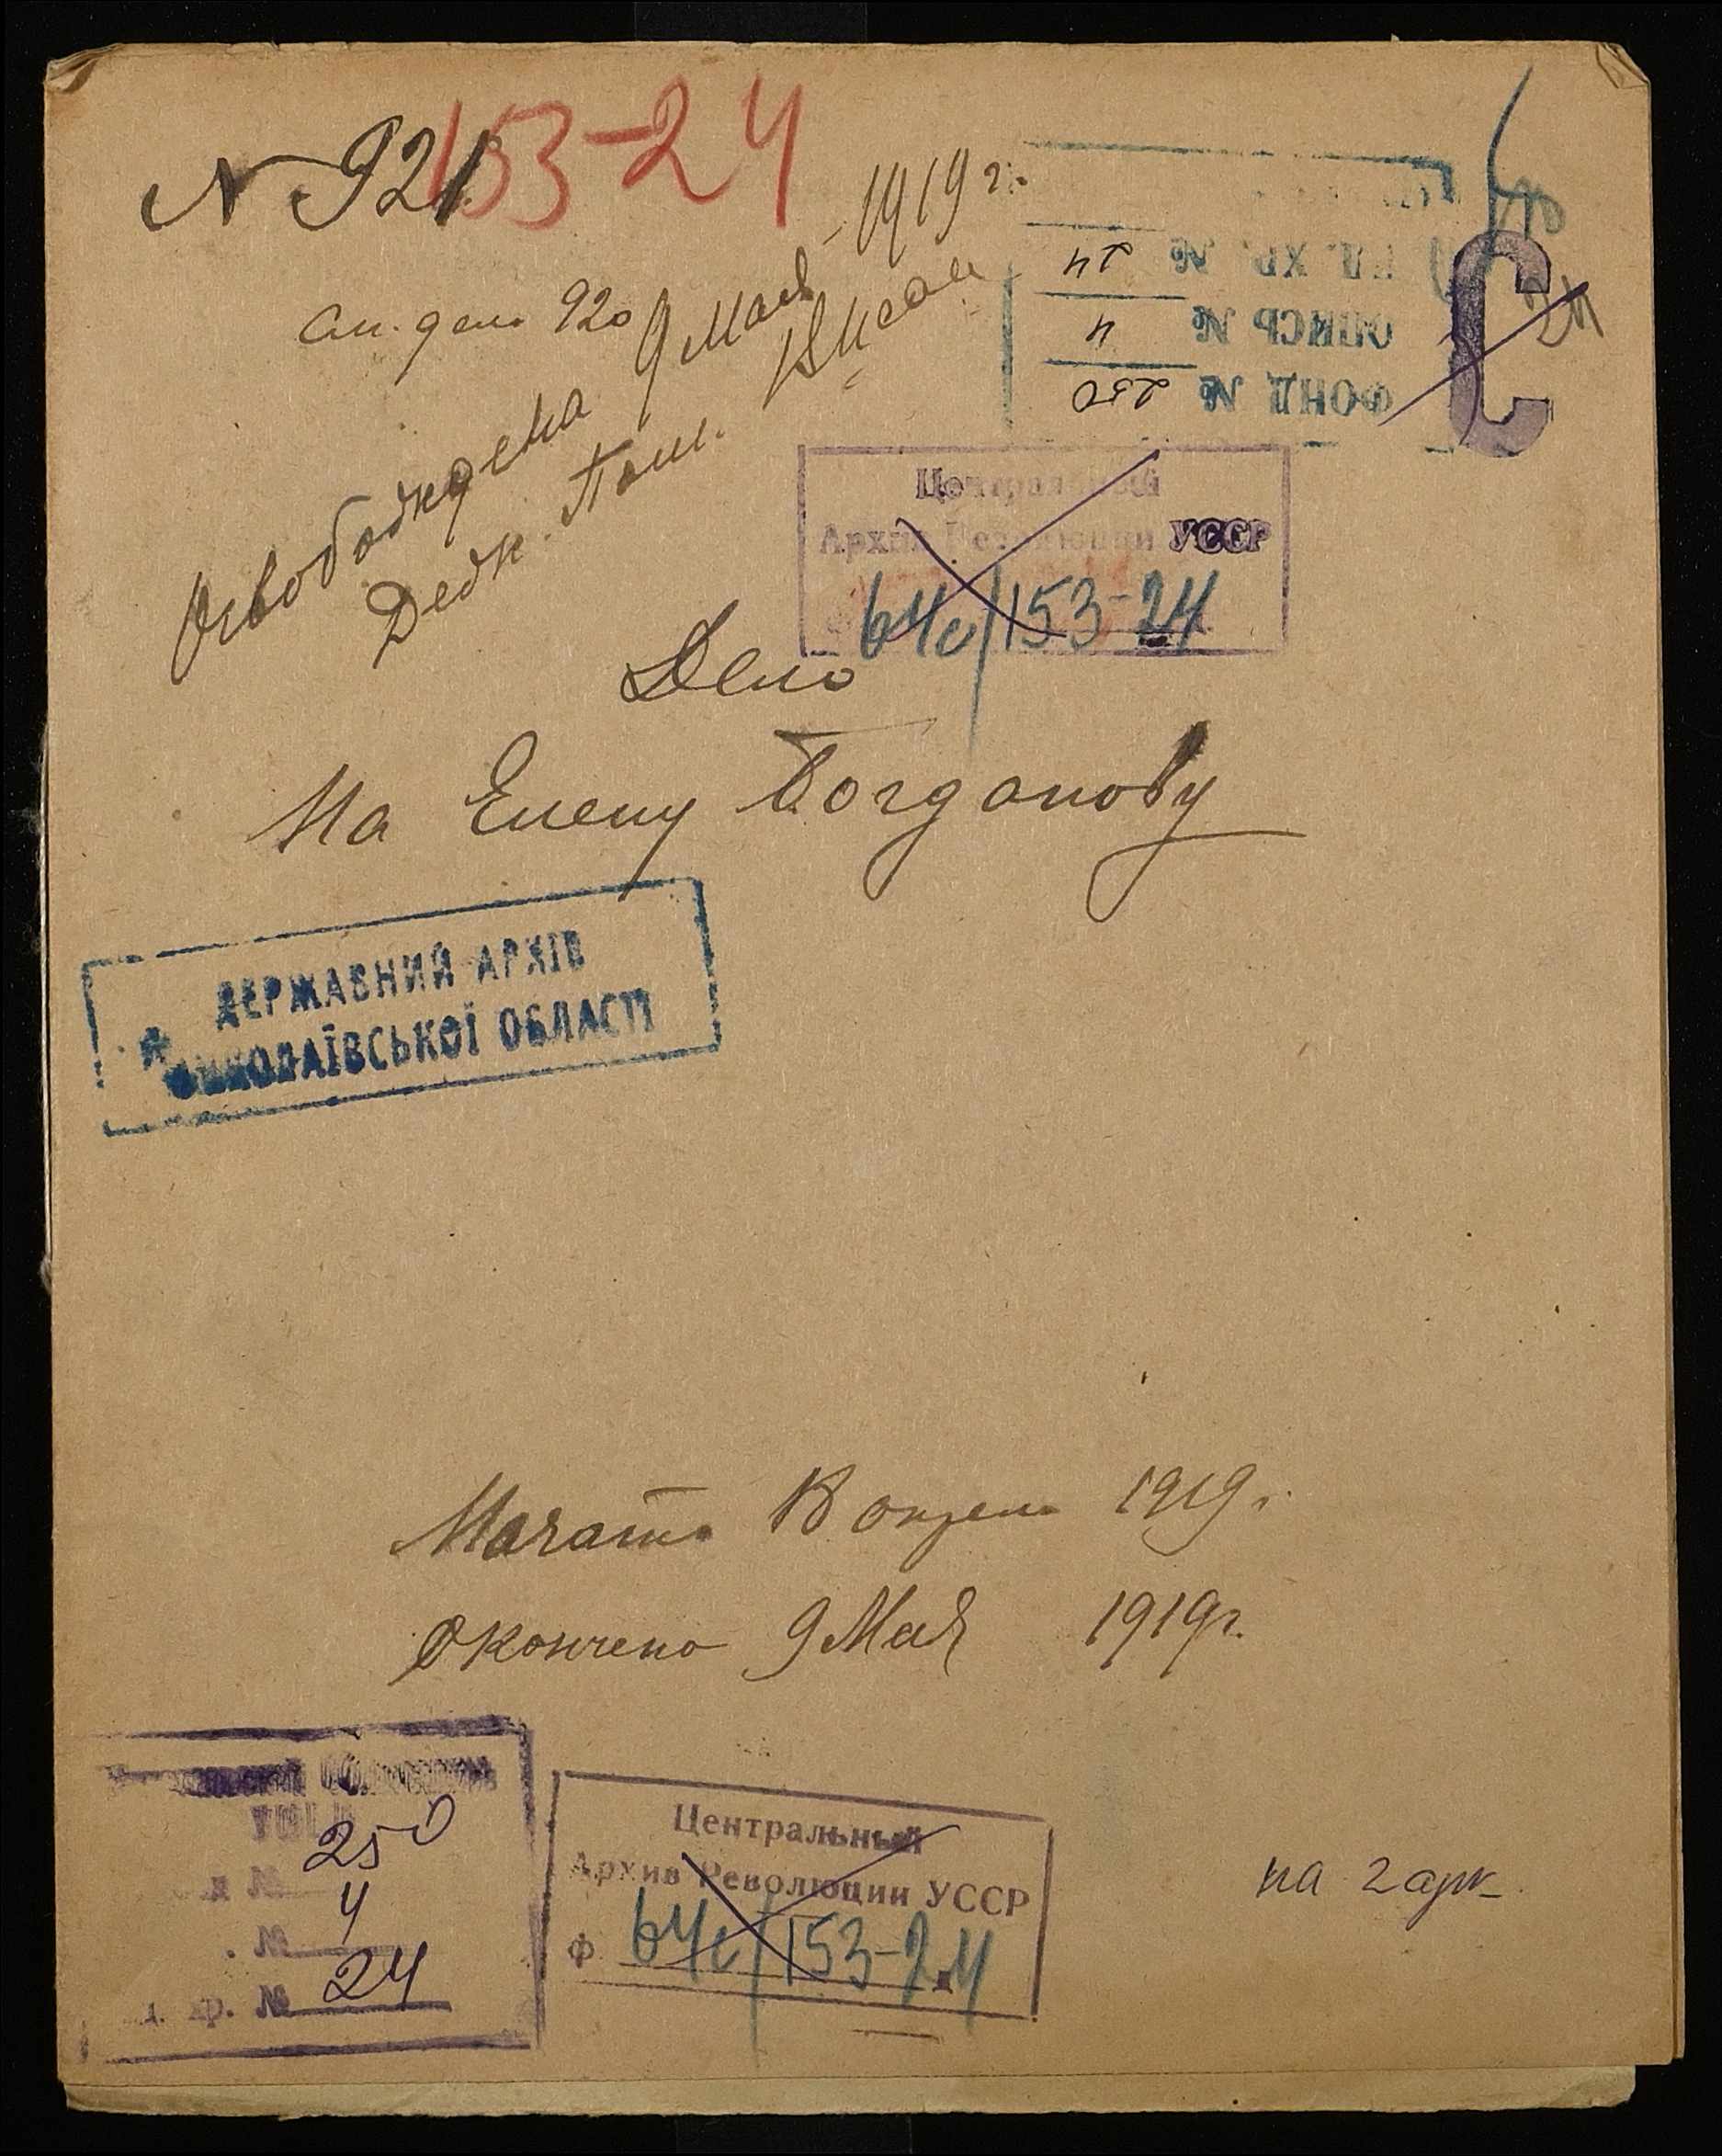 N 921
153-24
См. дело 920
Освобождена 9 Мая 1919 г.
Деж. Пом.
ЕД. ХР. № 24
ОПИСЬ № 4
ФОНД № 250
С
24
Центральный
Архив Революции УССР
64с/153-24
Дело
На Елену Богданову
ДЕРЖАВНИЙ АРХІВ
МИКОЛАЇВСЬКОЇ ОБЛАСТІ
Начато 18 апреля 1919 г.
Окончено 9 Мая 1919 г.
250
№ 4
хр. № 24
Центральный
Архив Революции УССР
ф. 64с/153-24
на 2 арк.